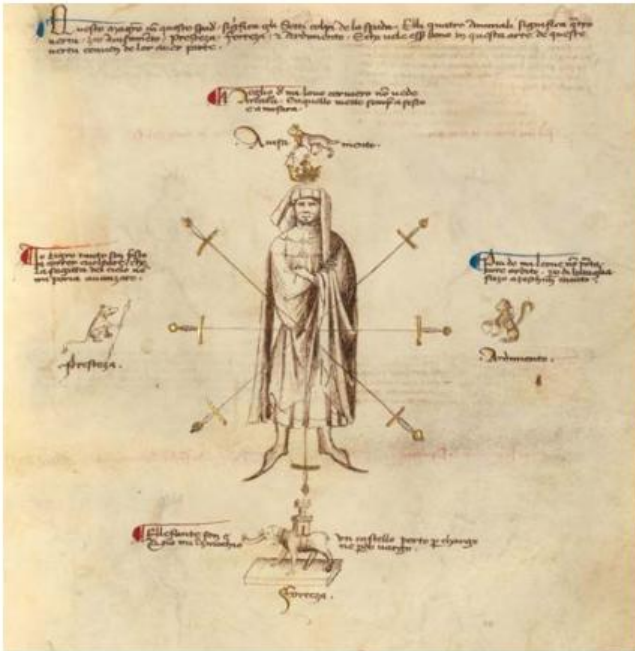 Questo magro cũ queste spade significa gli Setti colpi de la spada. Elli quatro animali significa q̃tro
vertu. zoe Avisamento, Presteza, Forteza, & Ardimento. E chi vole esser bono in questa arte de queste
vertu conven de lor aver parte.
Meglio de mi lovo cerviero nõ vede
creatura. E aquello mette semp a sesto
e a mesura.
Avisa mento.
Io tigro tanto son presto
a correr e voltare / che
la sagitta del cielo no
mi poria avanzare.
Presteza.
Piu de mi leone nõ porta
core ardito. di bataglia
fazo a zaschun invito.
Ardimento.
Ellefante son e un castello porto p chargo
E nõ mi inzenochio ne pdo vargo.
Forteza.